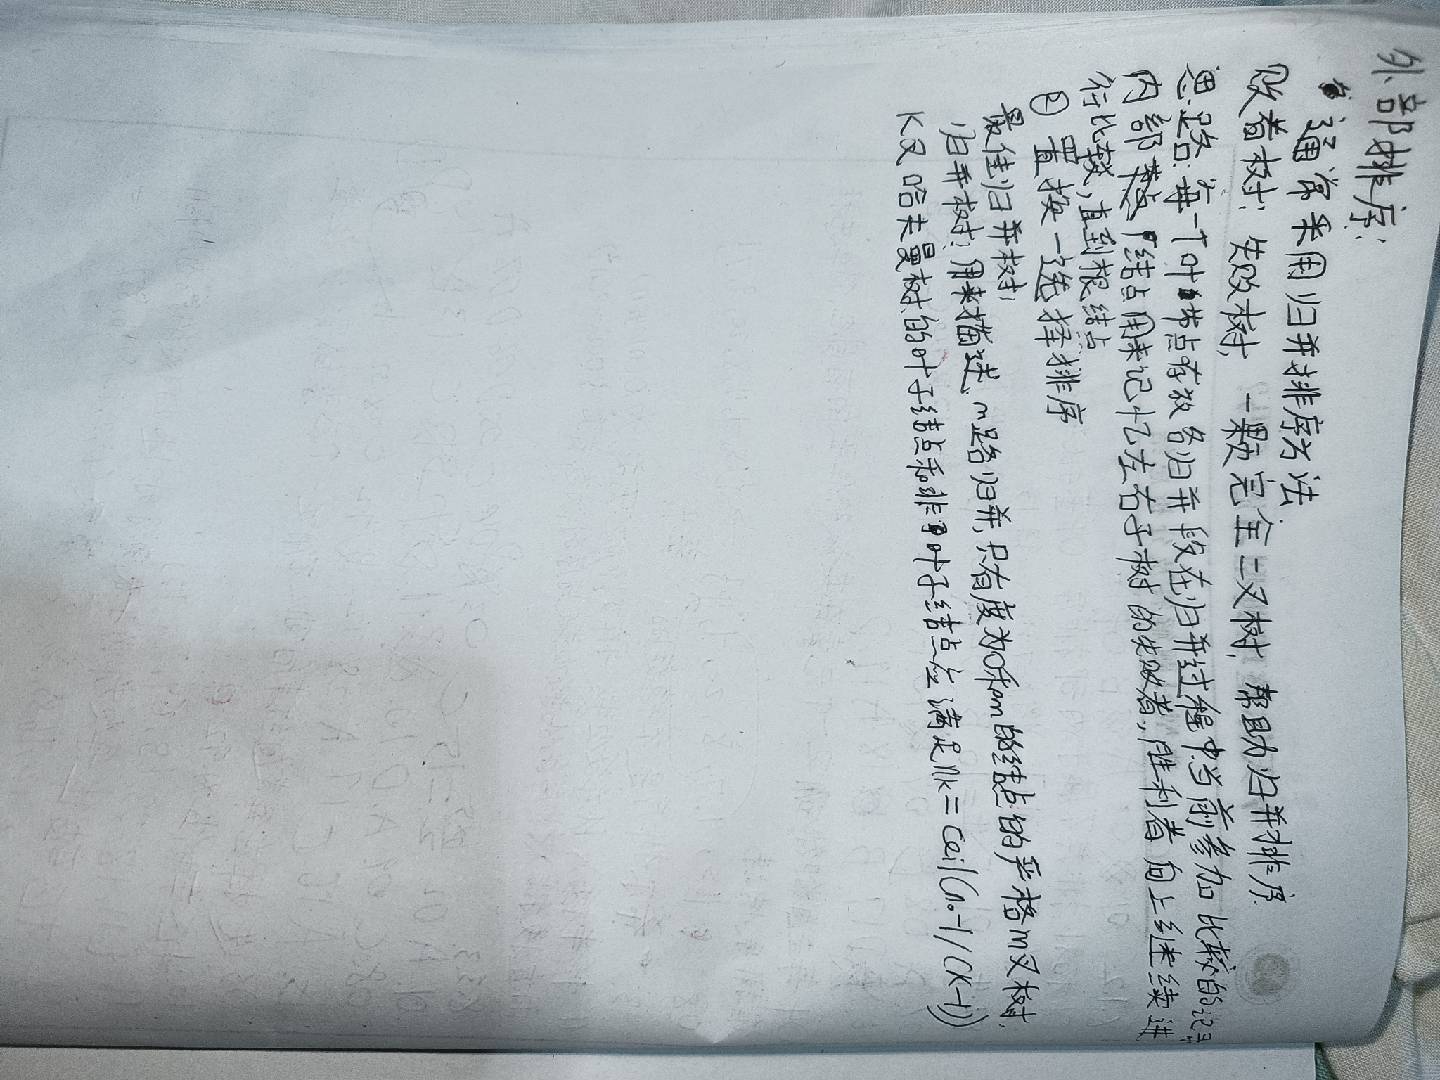 外部排序:
通常采用归并排序方法.
败者树: 失败树, 一颗完全二叉树, 帮助归并排序.
思路: 每一个叶节点存放各归并段在归并过程中当前参加比较的记录
内部结点用来记忆左右子树的失败者, 胜利者向上继续进
行比较, 直到根结点
② 置换一选择排序
最佳归并树:
归并树: 用来描述m路归并, 只有度为0和m的结点的严格m叉树.
K叉哈夫曼树的叶子结点和非叶子结点应满足nk=ceil(n₀-1/(K-1))